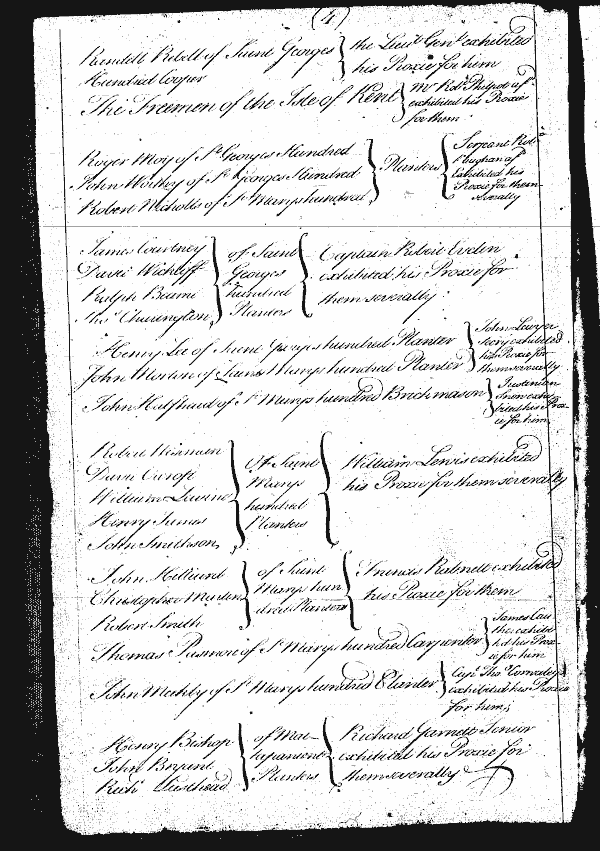 (4)
Randell Revell of Saint Georges } the Lieut Genl exhibited
Hundred Cooper his Proxie for him
The Freemen of the Isle of Kent } Mr Robt Philpot
exhibited his Proxie
for them
Roger Moy of St Georges Hundred } Planters { Serjeant Robt
John Worthy of St Georges Hundred Vaughan
Robert Nicholls of St Marys hundred exhibited his
Proxie for them
severally
James Courtney } of Saint { Captain Robert Evelin
David Wickliff Georges exhibited his Proxie for
Ralph Beane hundred them severally
Thos Charington Planters
Henry Lee of Saint Georges hundred Planter } John Lawyer
John Morton of Saint Marys hundred Planter exhibited
his Proxie for
them severally
John Halfhead of St Marys hundred Brickmason }
exhibited his Prox-
ie for him
Robert Wiseman } Of Saint { William Lewis exhibited
Marys his Proxie for them severally
William hundred
Henry James Planters
John Smithson
John Hilliard } of Saint { Francis Rabnett exhibited
Christopher Marten Marys hun his Proxie for them
Robert Smith dred Planters
Thomas Pasmore of St Marys hundred Carpenter } James Cau
ther exhibi
ted his Prox
ie for him
John Medley of St Marys hundred Planter } Capt Thos Cornwaleys
exhibited his Proxie
for him;
Henry Bishop } of Mat- { Richard Garnett Senior
John Bryant tapanient exhibited his Proxie for
Planters them severally